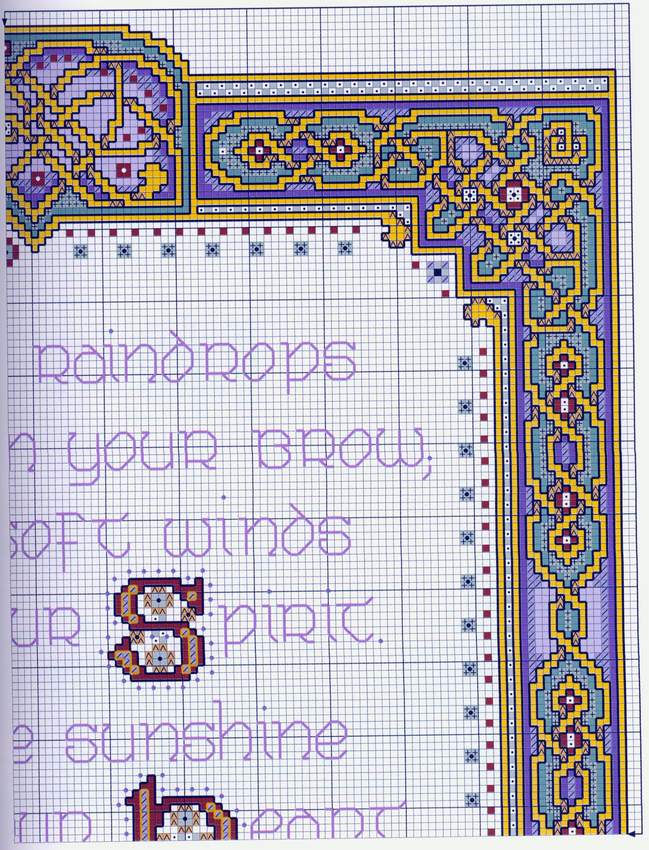 raindrops
n your brow;
soft winds
ur Spirit.
e sunshine
ur heart